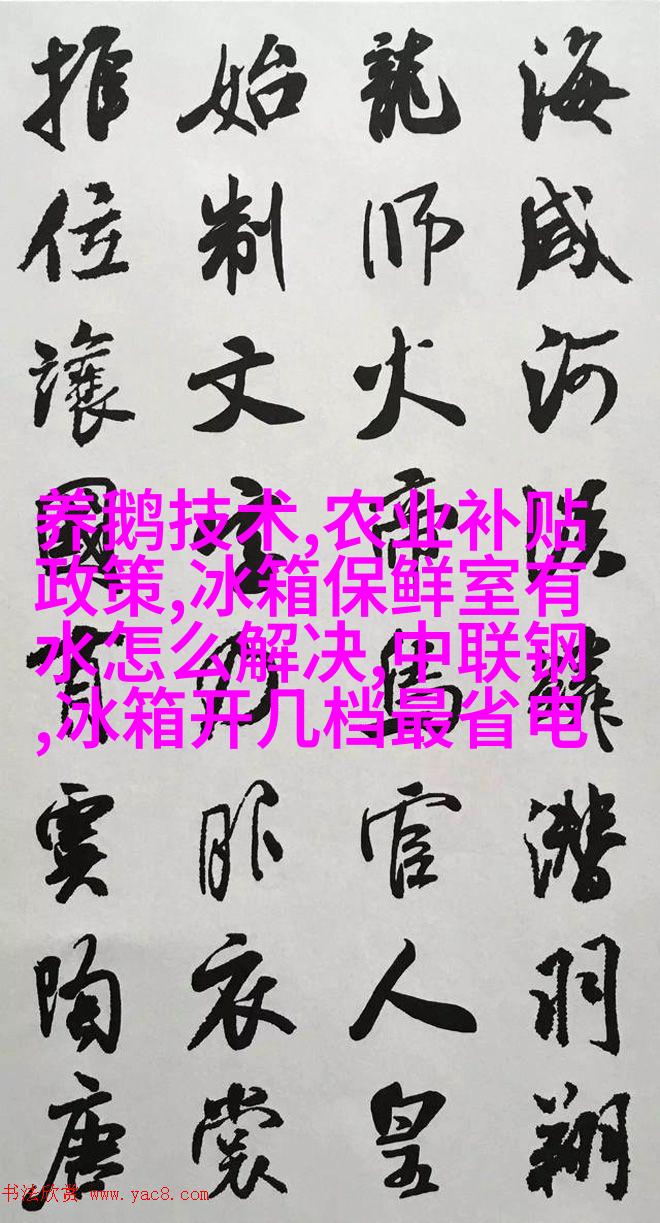 海咸河淡鱗潛羽翔
龍師火帝鳥官人皇
始制文字乃服衣裳
推位讓國有虞陶唐
养鹅技术,农业补贴
政策,冰箱保鲜室有
水怎么解决,中联钢
,冰箱开几档最省电
书法欣赏 www.yac8.com